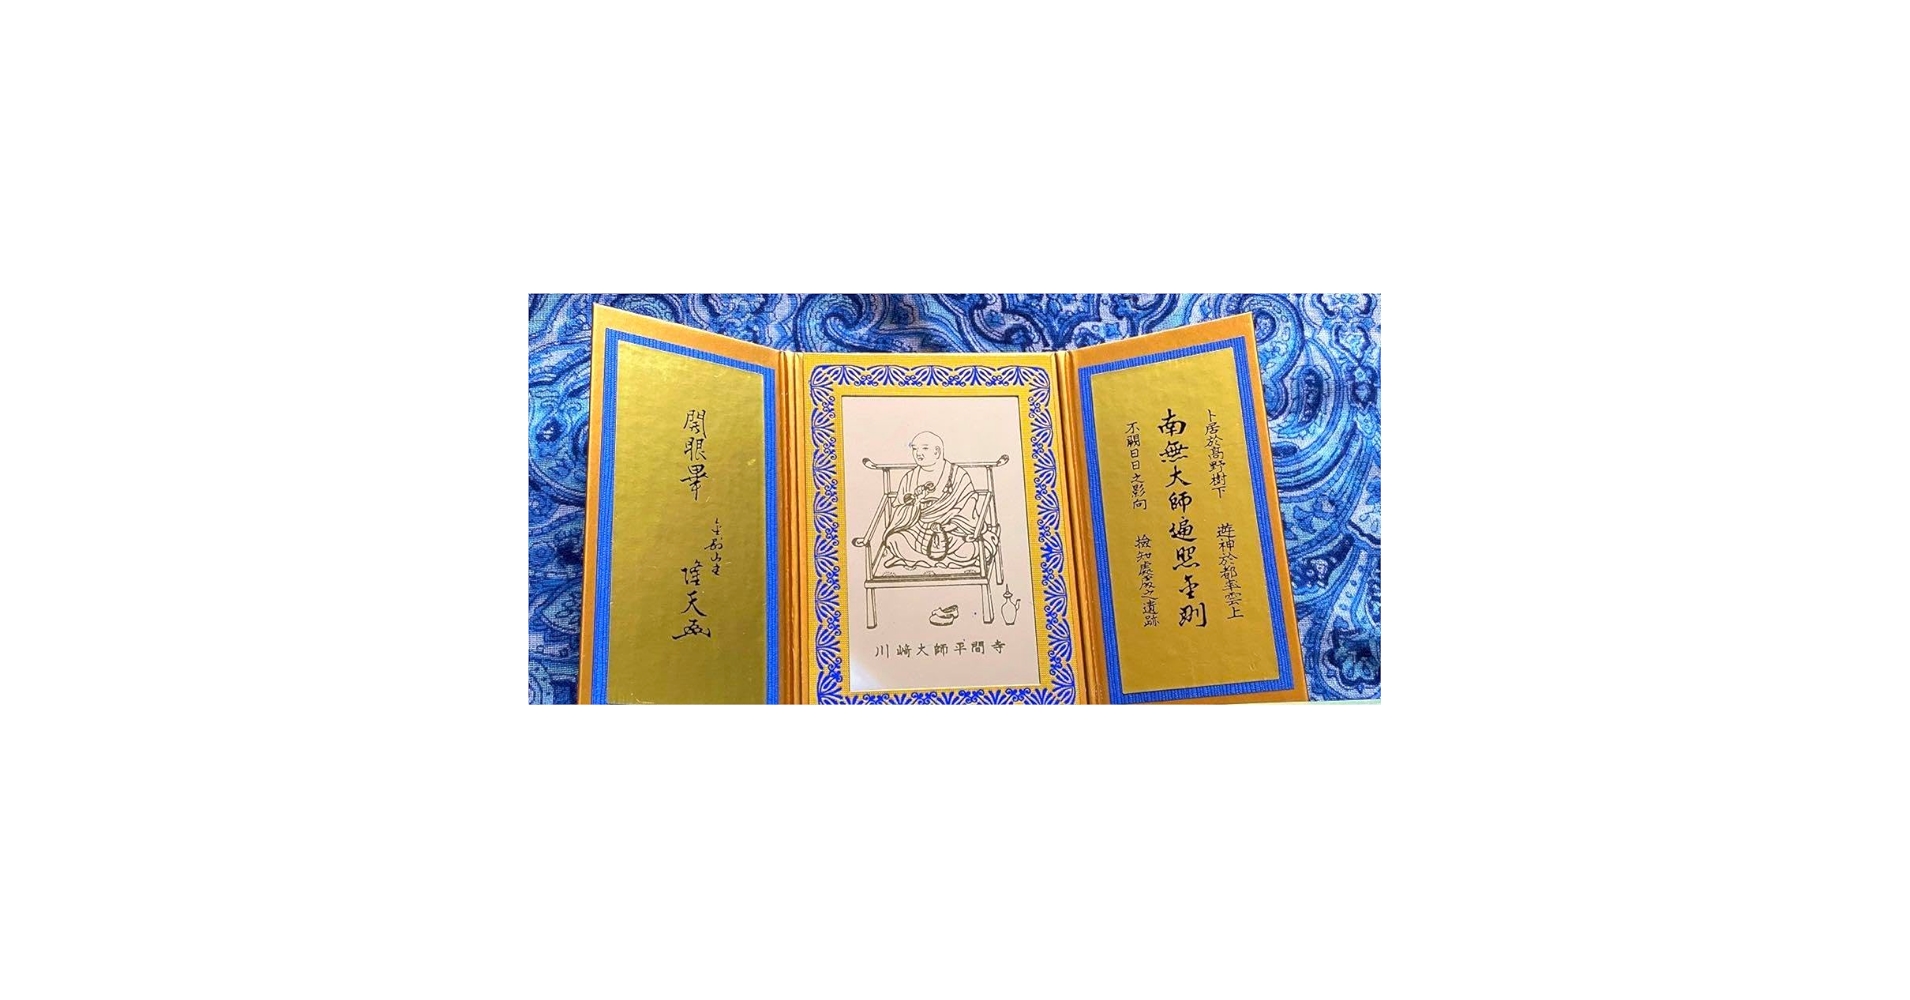 卜居於高野樹下 遊神於都率雲上
南無大師遍照金剛
不闕日日之影向 撿知處處之遺跡
川崎大師平間寺
開眼畢
金剛山主
隆天